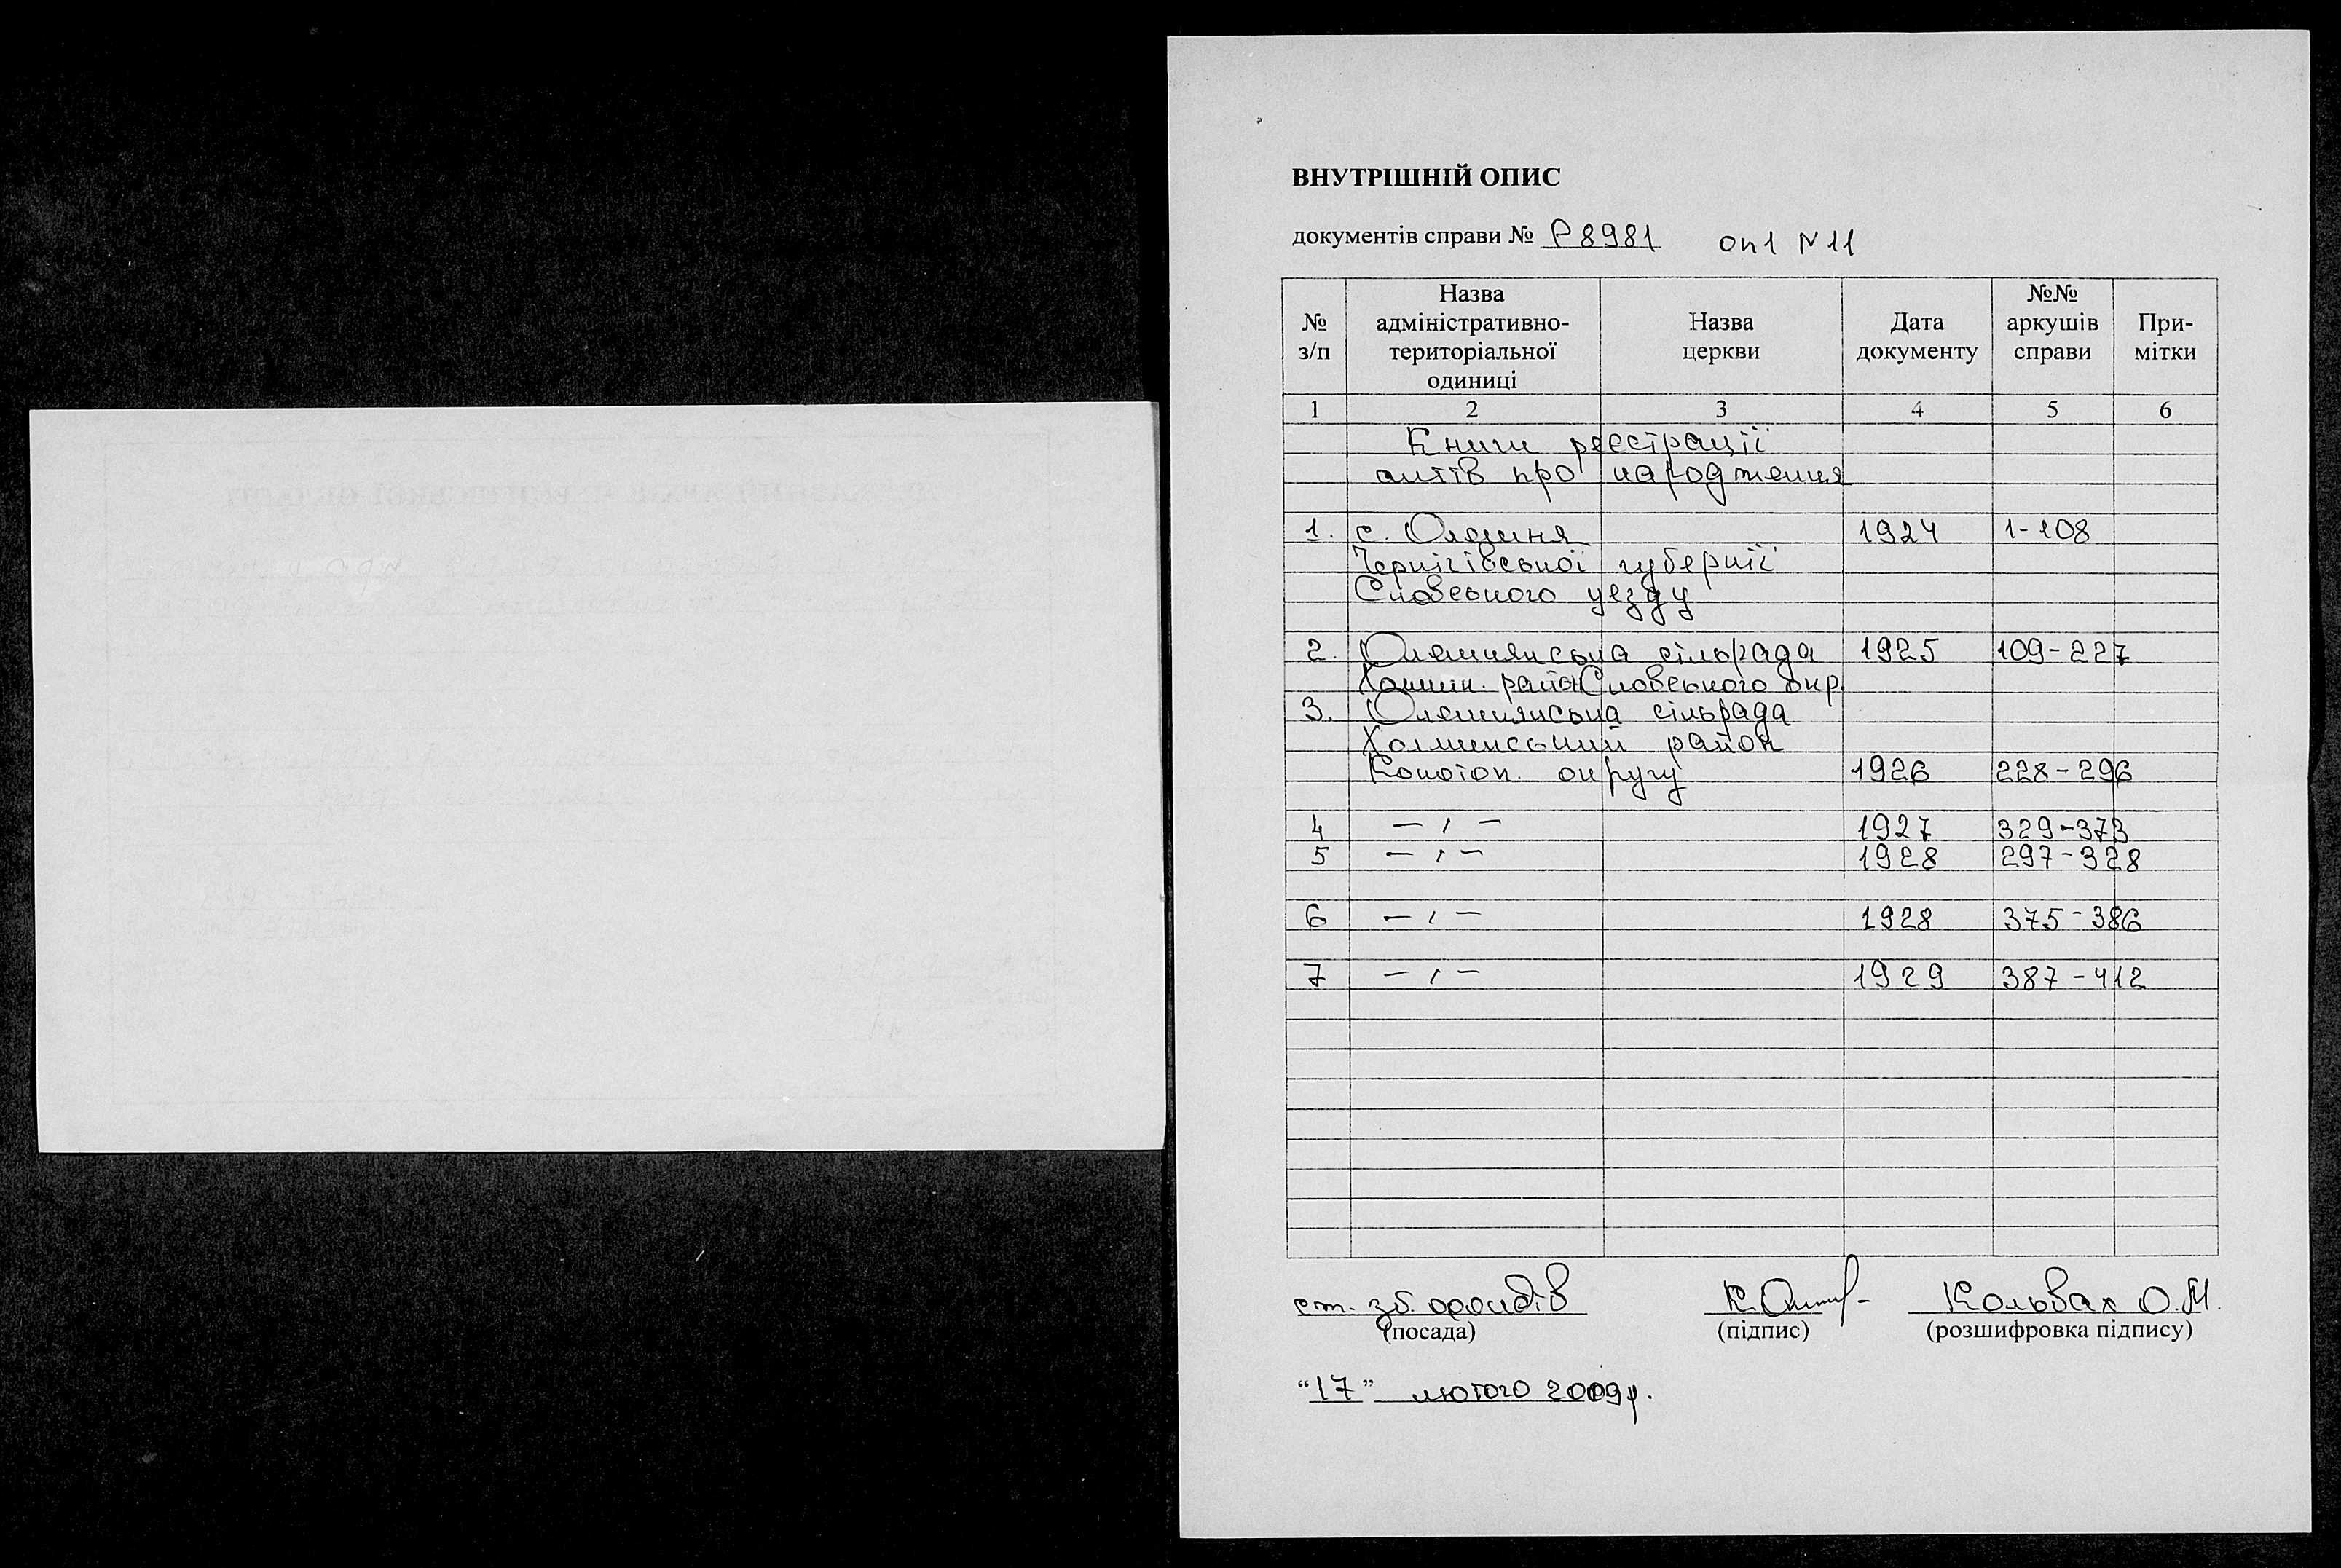 ВНУТРІШНІЙ ОПИС
документів справи № Р8981 оп1 N11
№ з/п
Назва адміністративно-територіальної одиниці
Назва церкви
Дата документу
№№ аркушів справи
При-мітки
1 2 3 4 5 6
Книги реєстрації
актів про народження
1. с. 1924 1-108
Чернігівської губернії
Сновського уезду
2. сільрада 1925 109-227
район Сновського окр.
3. сільрада
Холминський район
Конотоп. округу 1926 228-296
4 — , — 1927 329-373
5 — , — 1928 297-328
6 — , — 1928 375-386
7 — , — 1929 387-412
ст. зб. фондів Кольвах О.М.
(посада) (підпис) (розшифровка підпису)
“17” лютого 2009р.